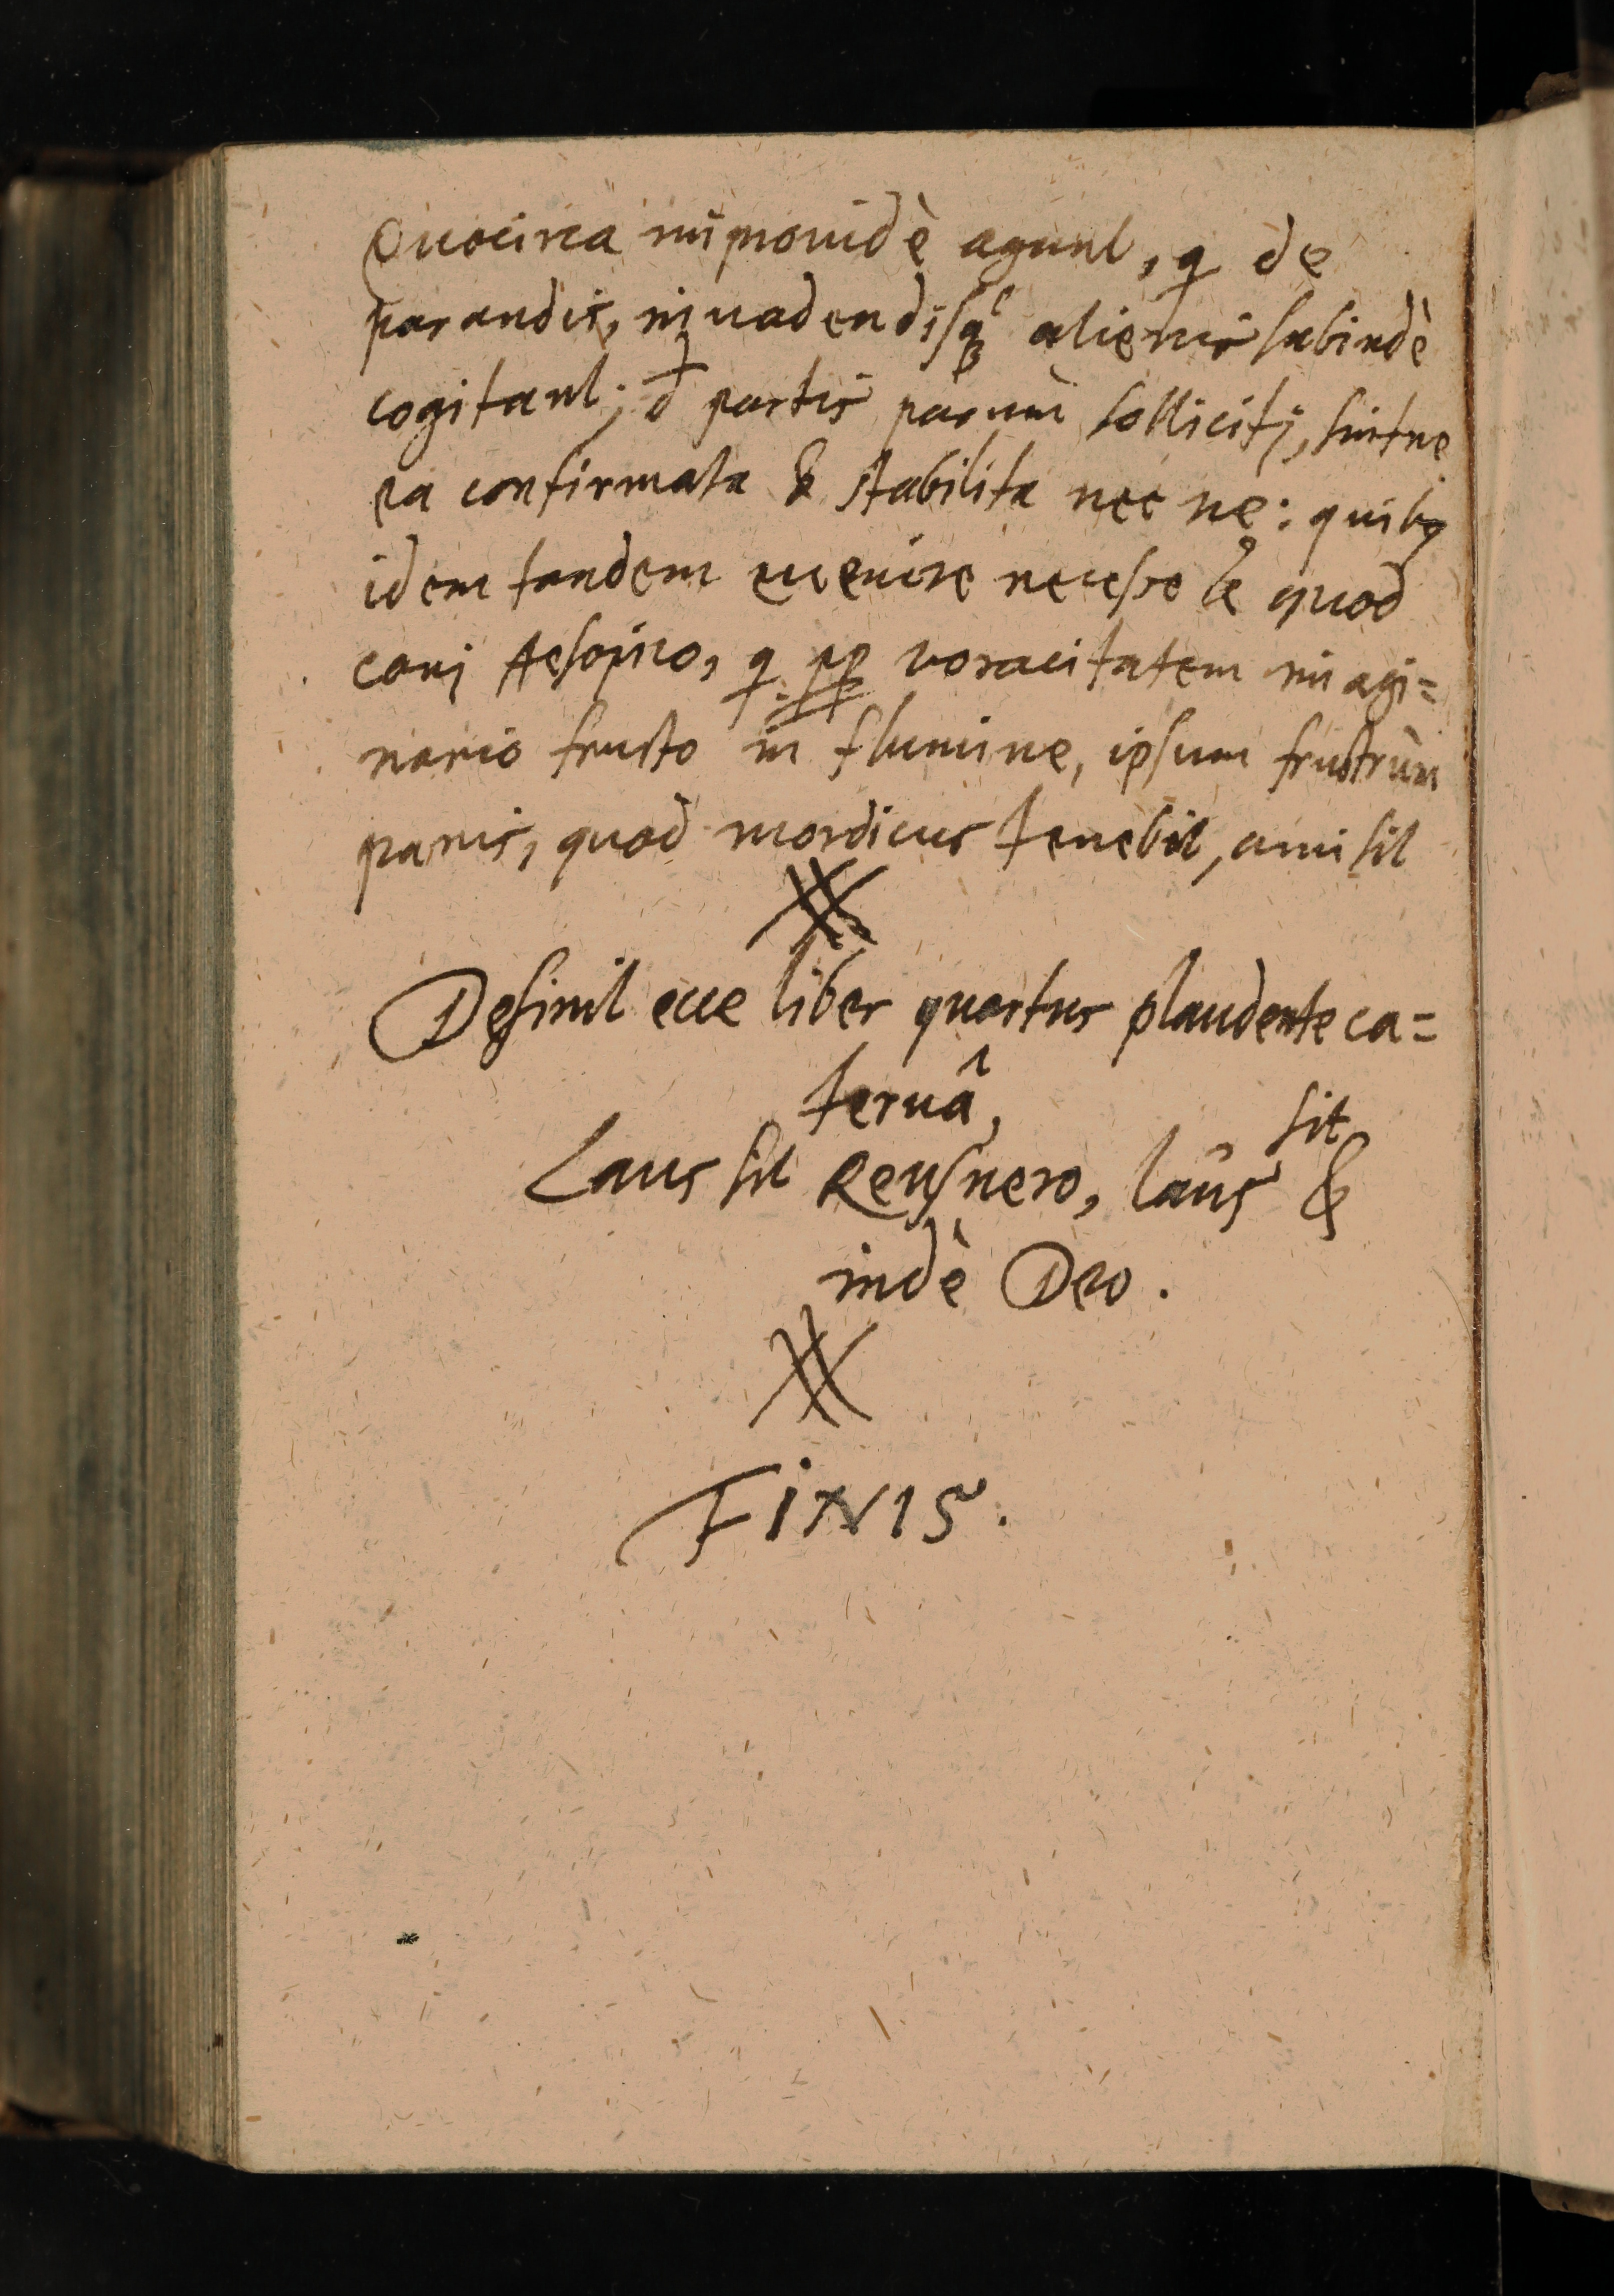 Quocirca improuidè agunt, q de
parandis, inuadendisq́ꝫ alienis subindè
cogitant; đ partis parùm solliciti, sintne
ea confirmata & stabilita nec ne: quibꝯ
idem tandem euenire necesse ē quod
cani Aesopico, q pp voracitatem imagi=
nario frusto in flumine, ipsum frustrùm
panis, quod mordicus tenebit, amisit
Desinit ecce liber quartus plaudente ca=
teruâ,
sit
Laus sit Reusnero, laus &
indè Deo.
FINIS.